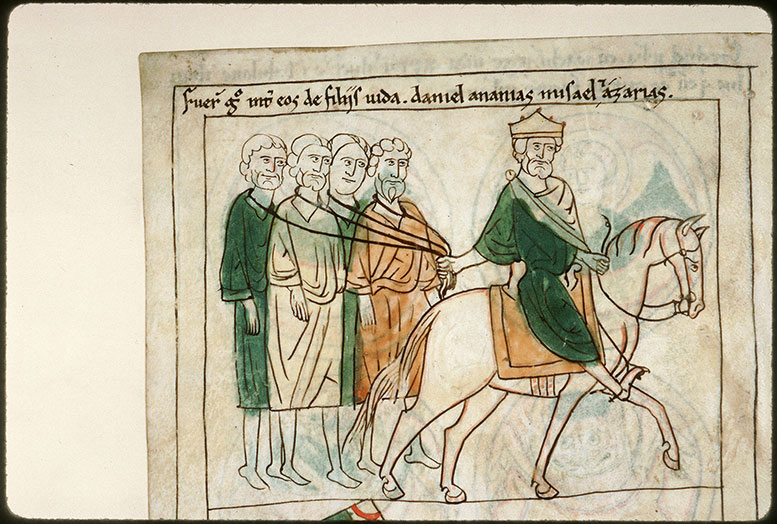 fuer̄ gͦ int̄ eos de filijs iuda. daniel ananias misael ⁊ azarias.